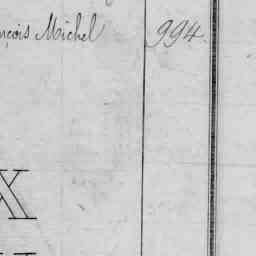 nçois Michel 994.
X